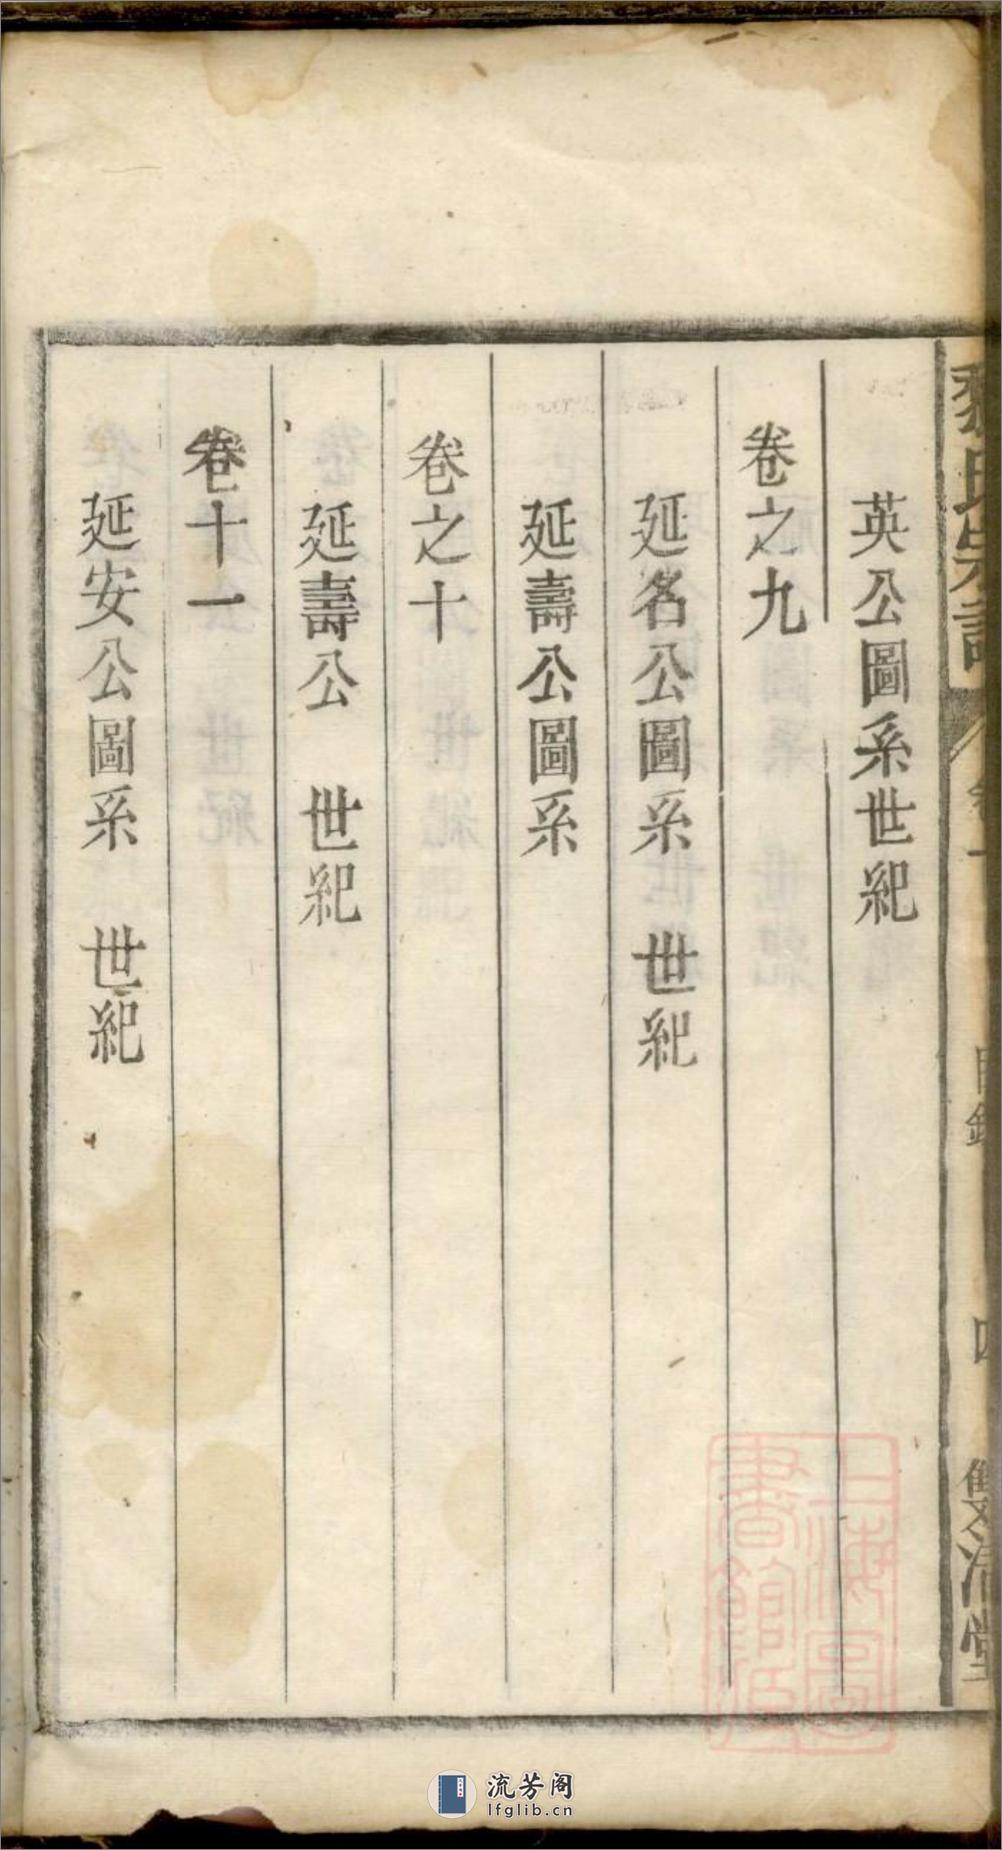 黎氏宗譜 卷一 目錄 四 雙清堂
英公圖系世紀
卷之九
延名公圖系 世紀
延壽公圖系
卷之十
延壽公 世紀
卷十一
延安公圖系 世紀
上海圖
書館藏
流芳阁
lfglib.cn